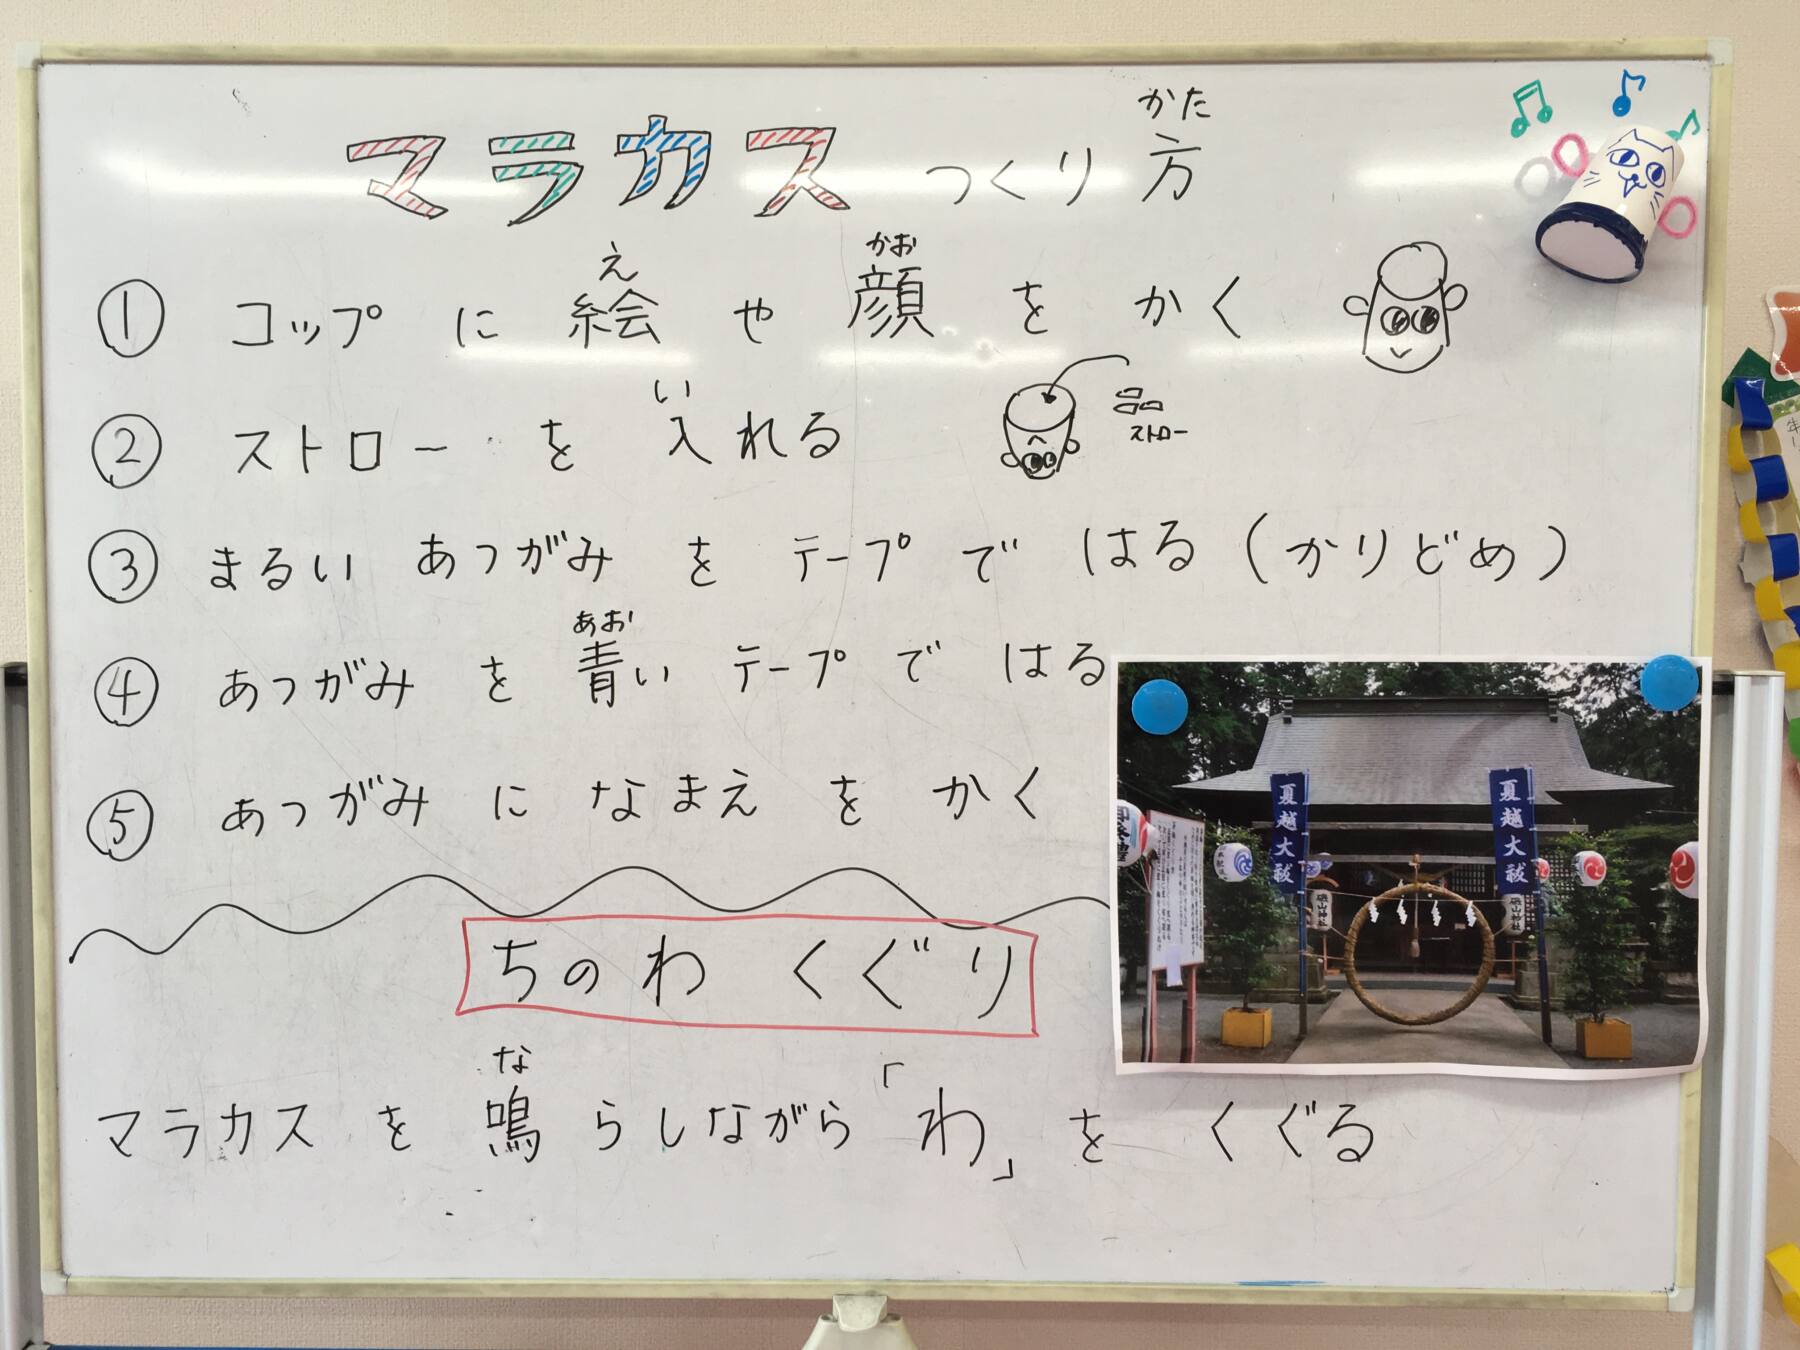 マラカス つくり方
かた
① コップ に 絵 や 顔 を かく
え かお
② ストロー を 入れる
い
ストロー
③ まるい あつがみ を テープ で はる (かりどめ)
④ あつがみ を 青い テープ で はる
あお
⑤ あつがみ に なまえ を かく
ちのわ くぐり
マラカス を 鳴らしながら「わ」を くぐる
な
夏越大祓
夏越大祓